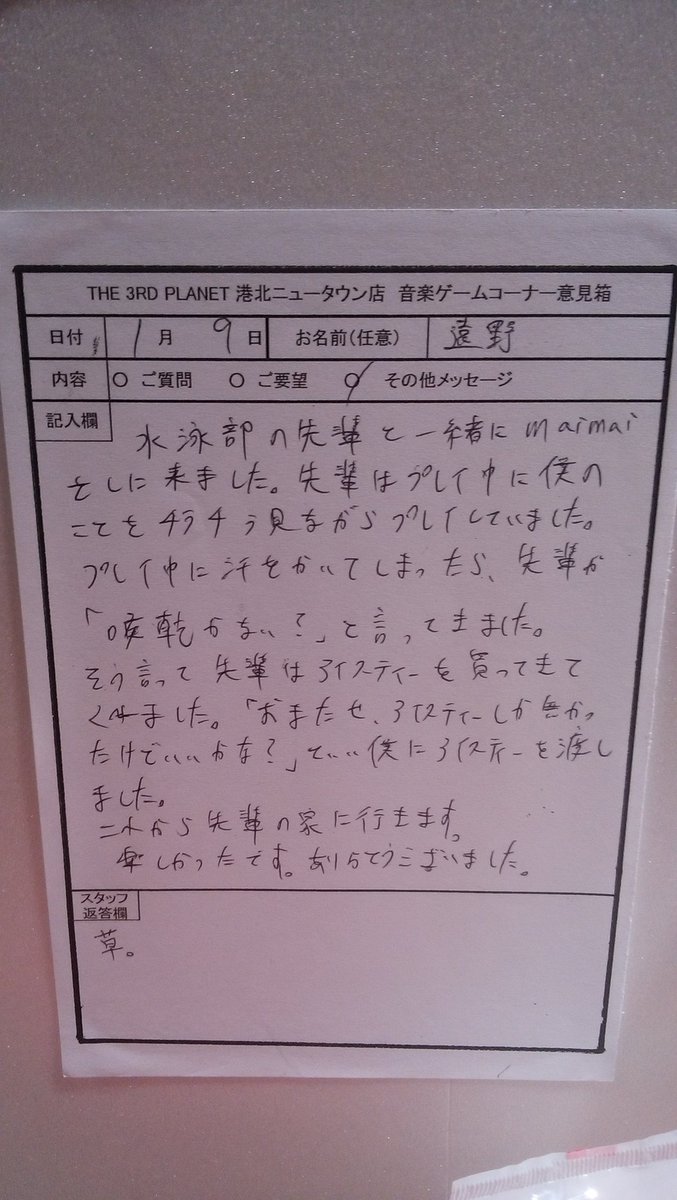 THE 3RD PLANET 港北ニュータウン店 音楽ゲームコーナー意見箱
日付 1月 9日 お名前(任意) 遠野
内容 ○ ご質問 ○ ご要望 ○ その他メッセージ
記入欄
水泳部の先輩と一緒にmaimai
をしに来ました。先輩はプレイ中に僕の
ことをチラチラ見ながらプレイしていました。
プレイ中に汗をかいてしまったら、先輩が
「喉乾かない?」と言ってきました。
そう言って先輩はアイスティーを買ってきて
くれました。「おまたせ、アイスティーしか無かっ
たけどいいかな?」といい僕にアイスティーを渡し
ました。
これから先輩の家に行きます。
楽しかったです。ありがとうございました。
スタッフ
返答欄
草。